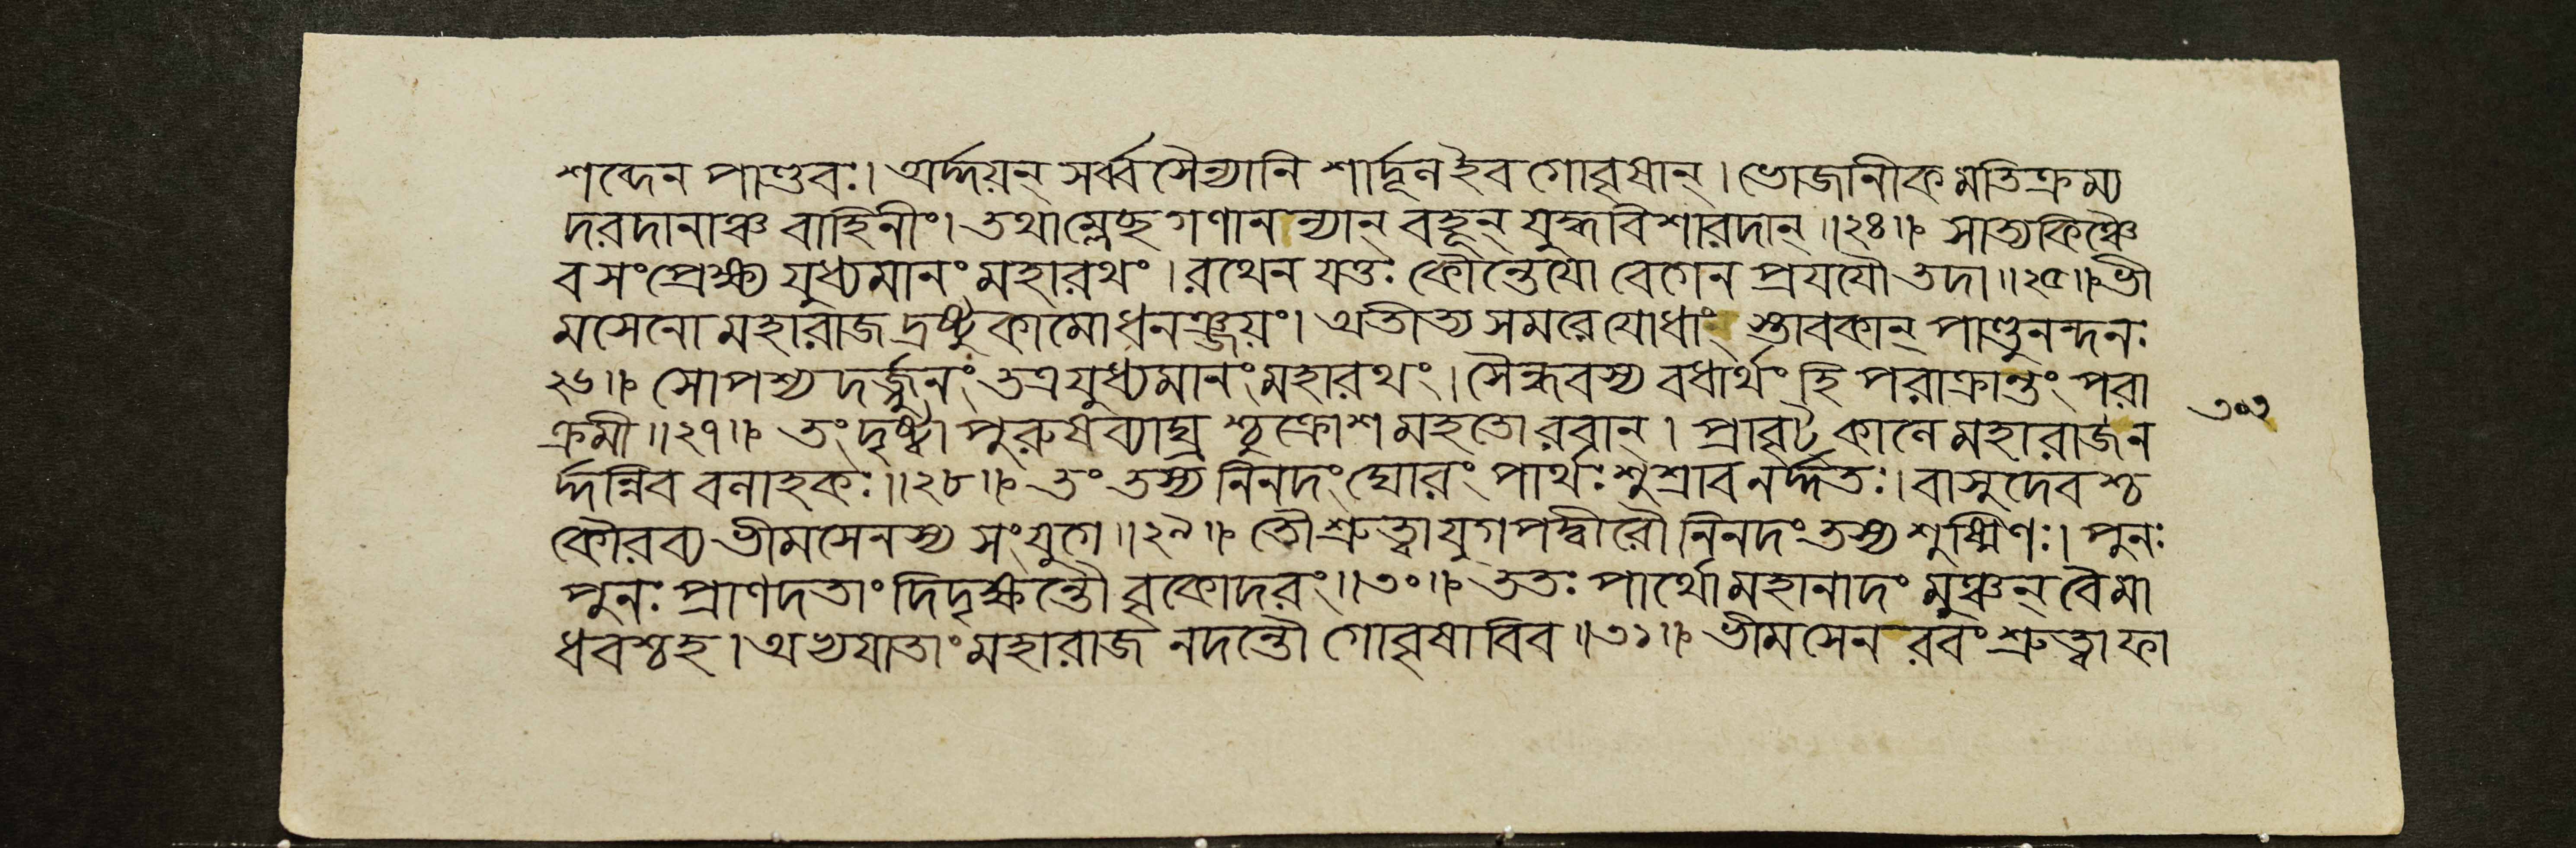 শব্দেন পাণ্ডবঃ। অর্দ্দয়ন্ সর্ব্ব সৈন্যানি শার্দূল ইব গোবৃষান্। ভোজানীকমতিক্রম্য
দরদানাঞ্চ বাহিনীং। তথা ম্লেচ্ছ গণানন্যান্ বহূন্ যুদ্ধবিশারদান্॥২৪॥ সাত্যকিঞ্চৈ
ব সংপ্রেক্ষ্য যুধ্যমানং মহারথং। রথেন যত্তঃ কৌন্তেয়ো বেগেন প্রযযৌ তদা॥২৫॥ ভী
মসেনো মহারাজ দ্রষ্টুকামো ধনঞ্জয়ং। অতীত্য সমরে যোধাং স্তাবকান্ পাণ্ডুনন্দনঃ
২৬॥ সোপশ্য দর্জ্জুনং তত্র যুধ্যমানং মহারথং। সৈন্ধবস্য বধার্থং হি পরাক্রান্তং পরা
ক্রমী॥২৭॥ তং দৃষ্ট্বা পুরুষব্যাঘ্র শ্চুক্রোশ মহতো রবান্। প্রাবৃট্ কালে মহারাজ ন
র্দ্দন্নিব বলাহকঃ॥২৮॥ তং তস্য নিনদং ঘোরং পার্থঃ শুশ্রাব নর্দ্দতঃ। বাসুদেবশ্চ
কৌরব্য ভীমসেনস্য সংযুগে॥২৯॥ তৌ শ্রুত্বা যুগপদ্বীরৌ নিনদং তস্য শুষ্মিণঃ। পুনঃ
পুনঃ প্রাণদতাং দিদৃক্ষন্তৌ বৃকোদরং॥৩০॥ ততঃ পার্থো মহানাদং মুঞ্চন্ বৈ মা
ধবশ্চহ। অভ্যযাতাং মহারাজ নদন্তৌ গোবৃষাবিব॥৩১॥ ভীমসেন রবং শ্রুত্বা ফা
৩০২